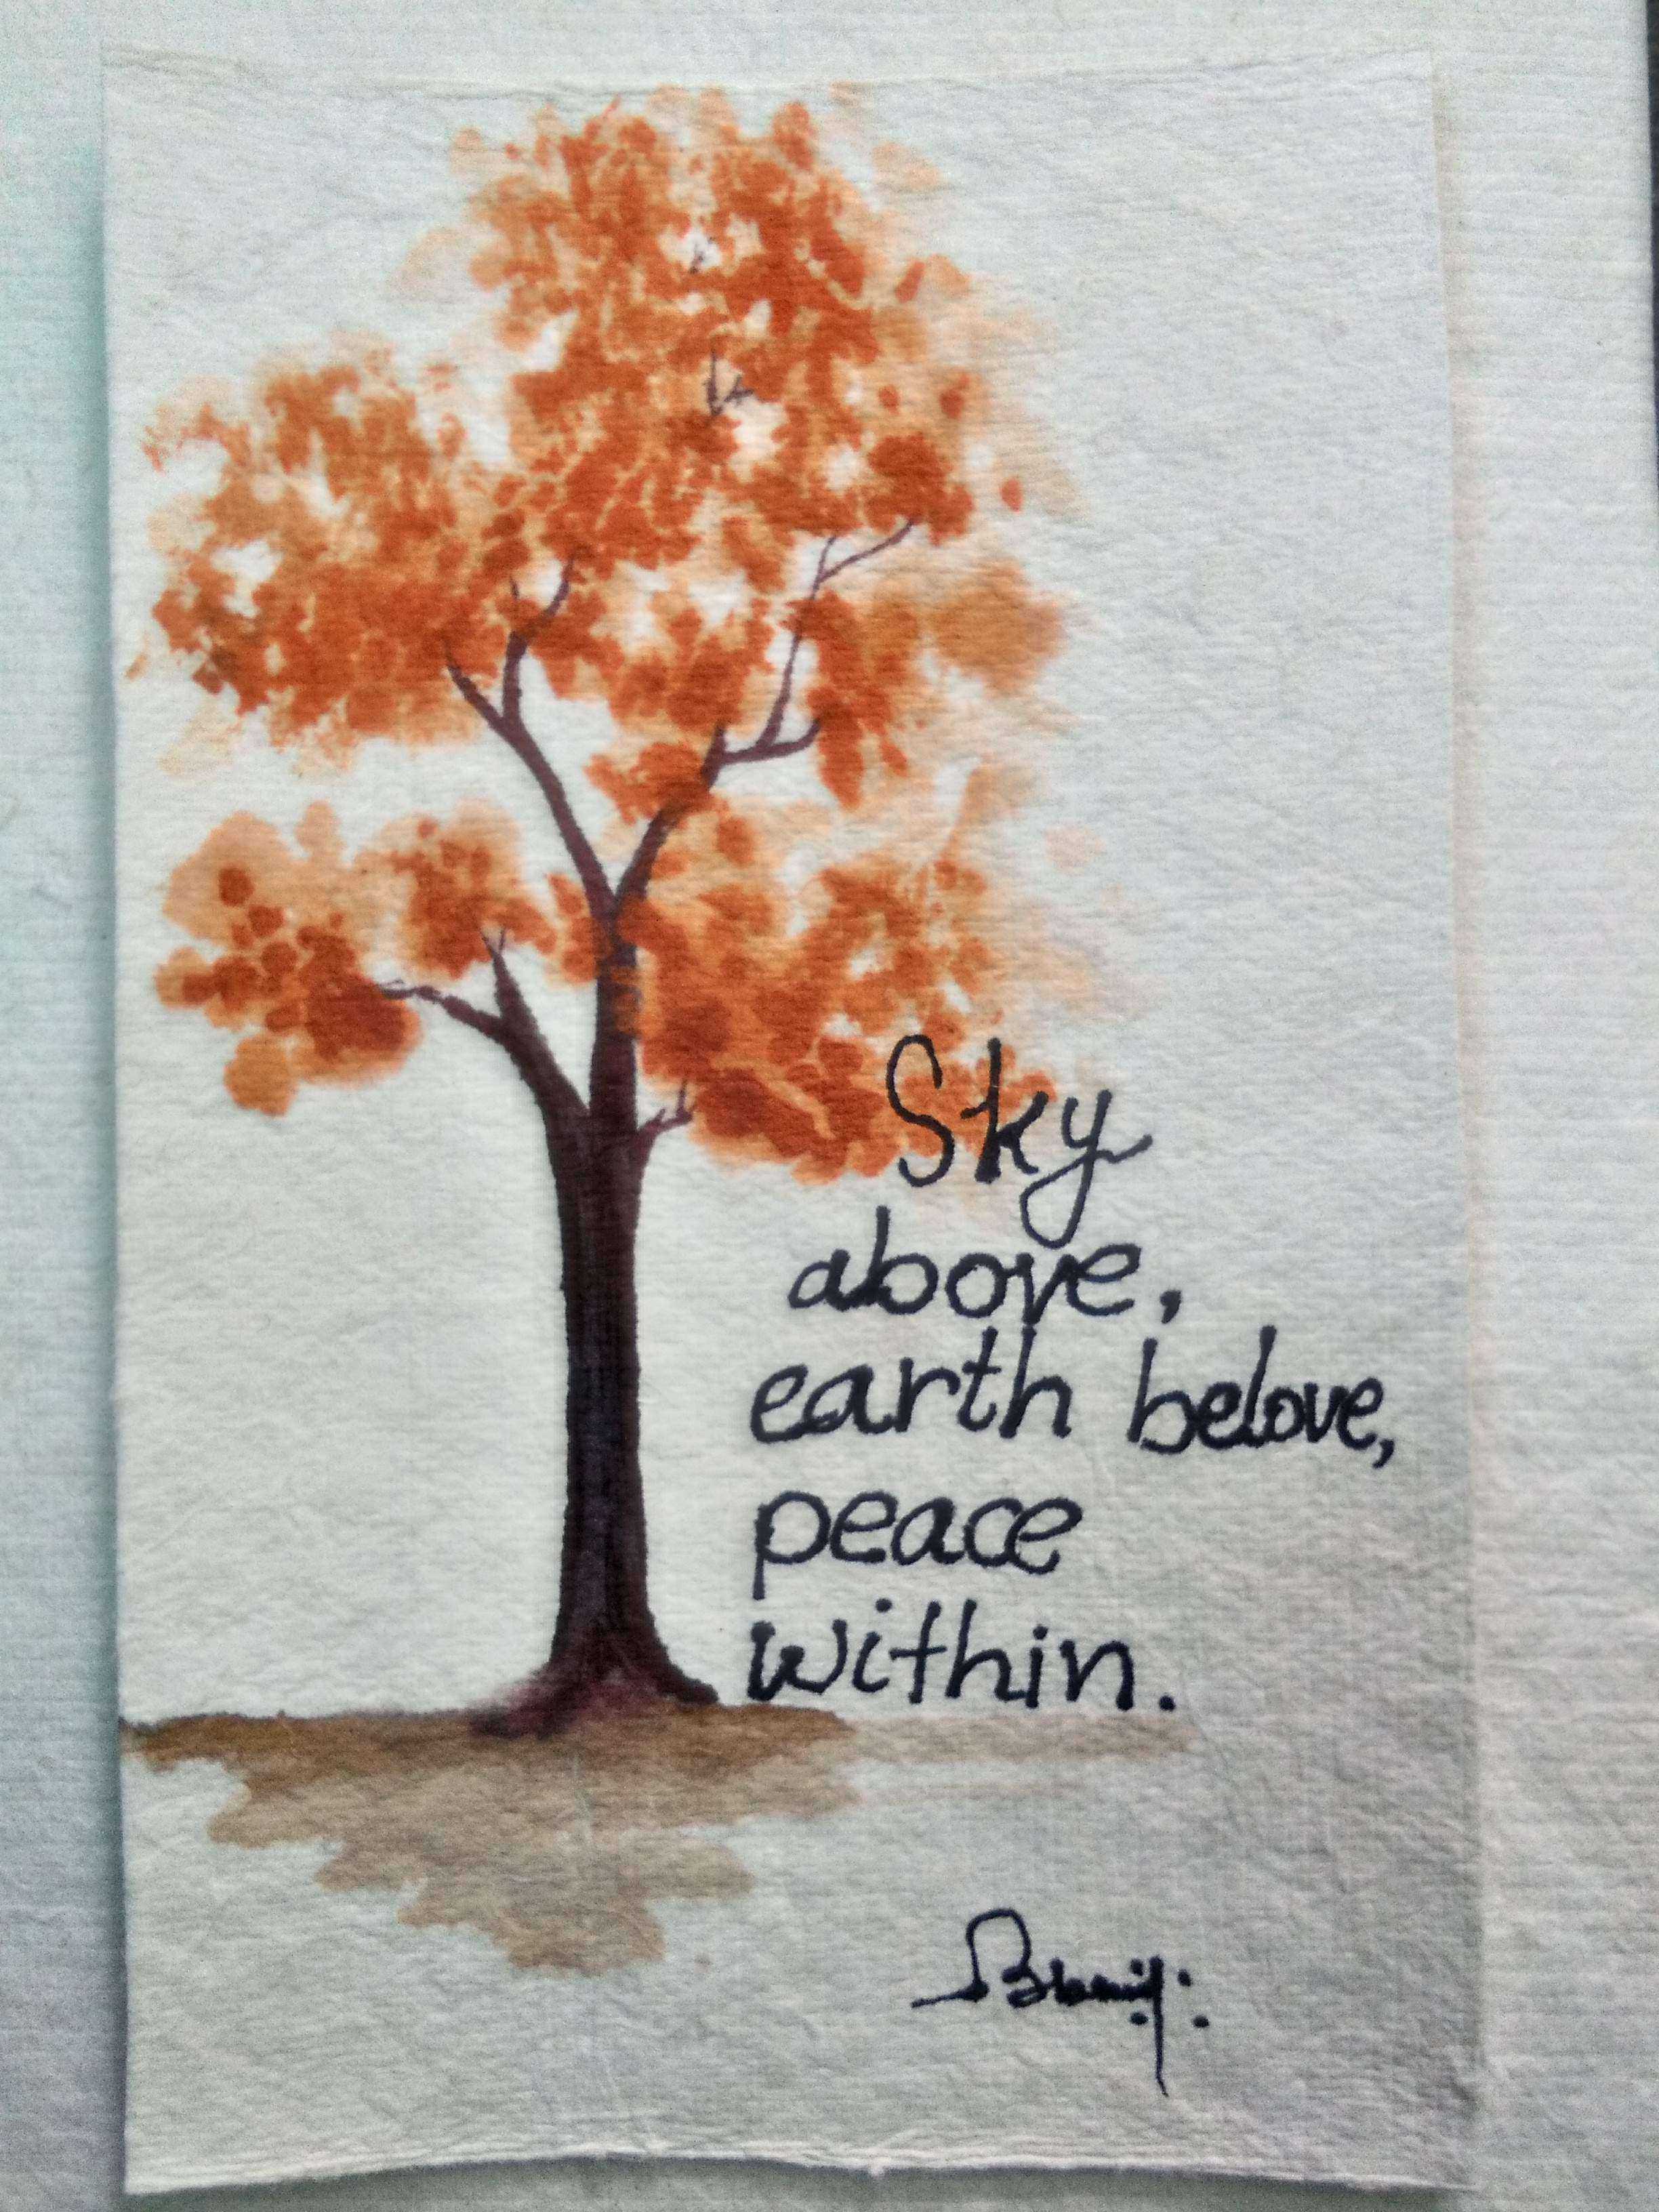 Sky
above,
earth belove,
peace
within.